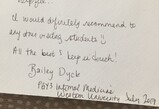 helpful.
I would definitely recommend to
any
visiting students
All the best & keep in touch!
Bailey Dyck
PGY3 Internal Medicine
Western University